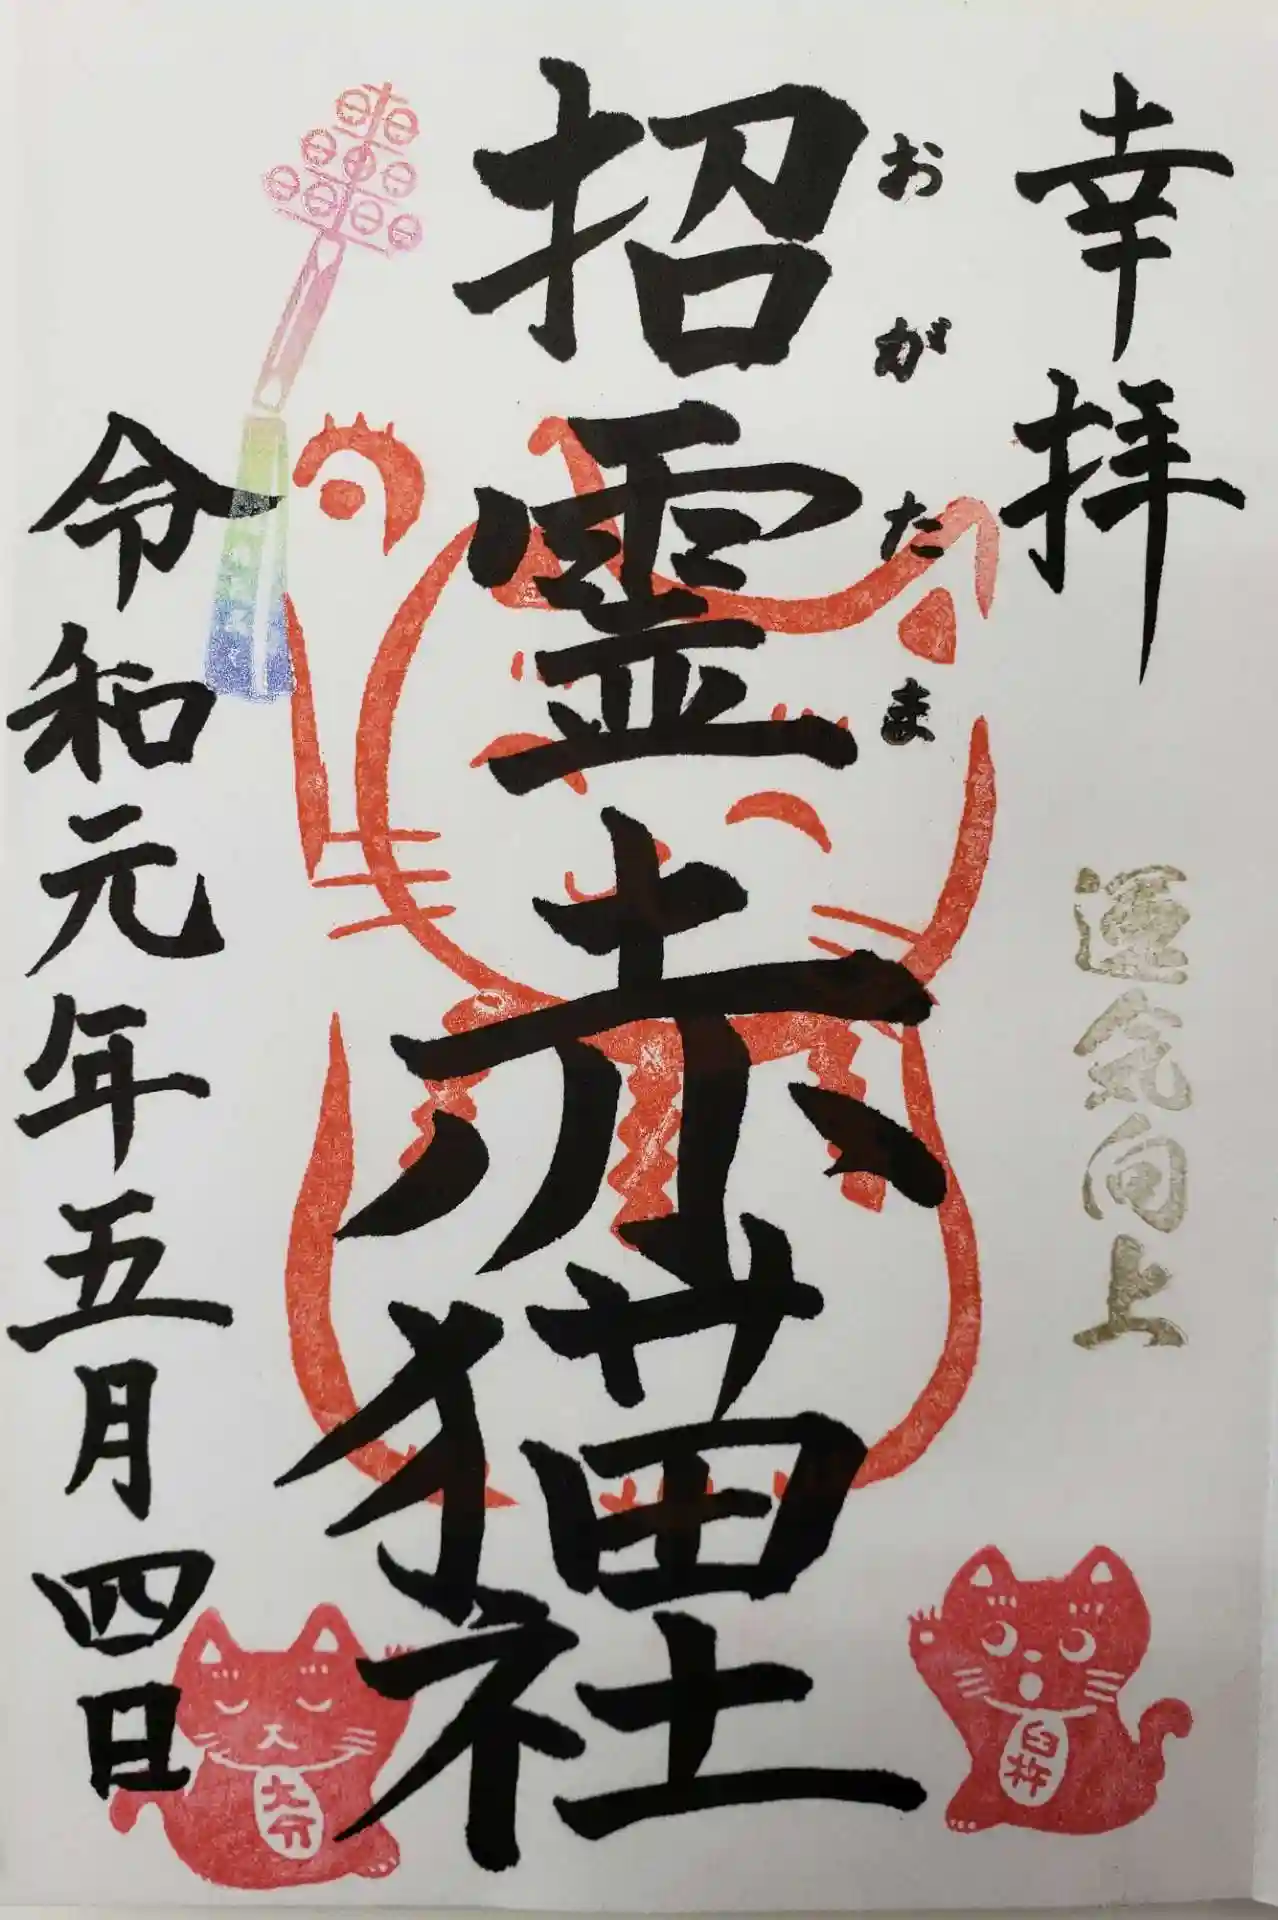 幸拝
運気向上
おがたま
招霊赤猫社
令和元年五月四日
臼杵
大分